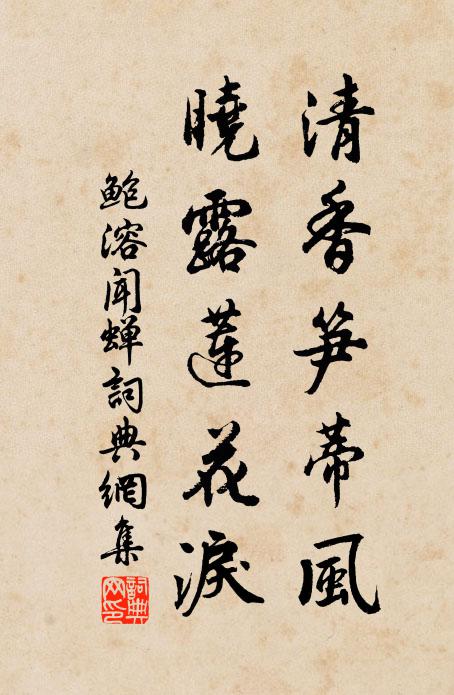 清香笋蒂風
曉露蓮花淚
鮑溶闻蟬詞典網集
詞典网印